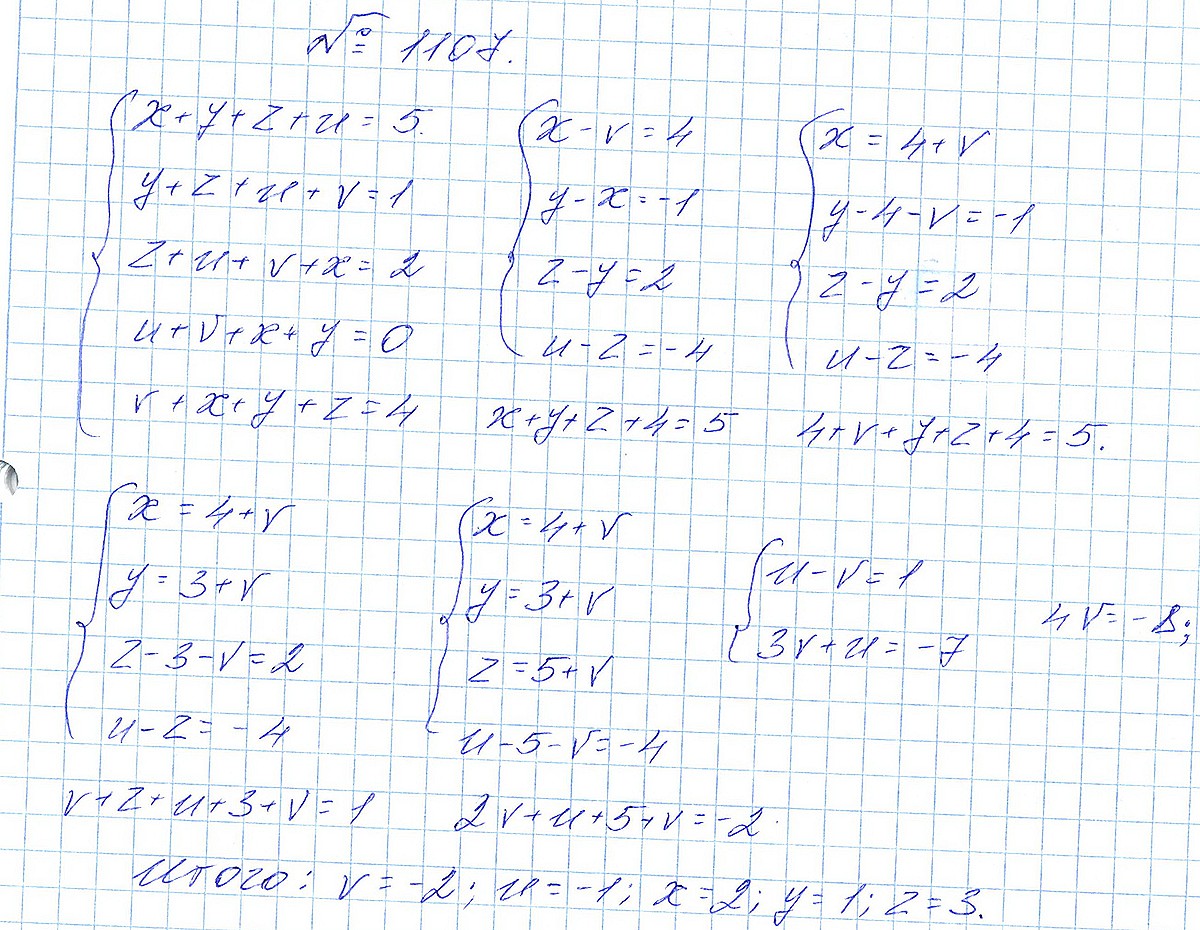 № 1107.
x+y+z+u=5.
y+z+u+v=1
z+u+v+x=2
u+v+x+y=0
v+x+y+z=4
x-v=4
y-x=-1
z-y=2
u-z=-4
x+y+z+4=5
x=4+v
y-4-v=-1
z-y=2
u-z=-4
4+v+y+z+4=5.
x=4+v
y=3+v
z-3-v=2
u-z=-4
v+z+u+3+v=1
x=4+v
y=3+v
z=5+v
u-5-v=-4
2v+u+5+v=-2.
u-v=1
3v+u=-7
4v=-8;
Итого: v=-2; u=-1; x=2; y=1; z=3.